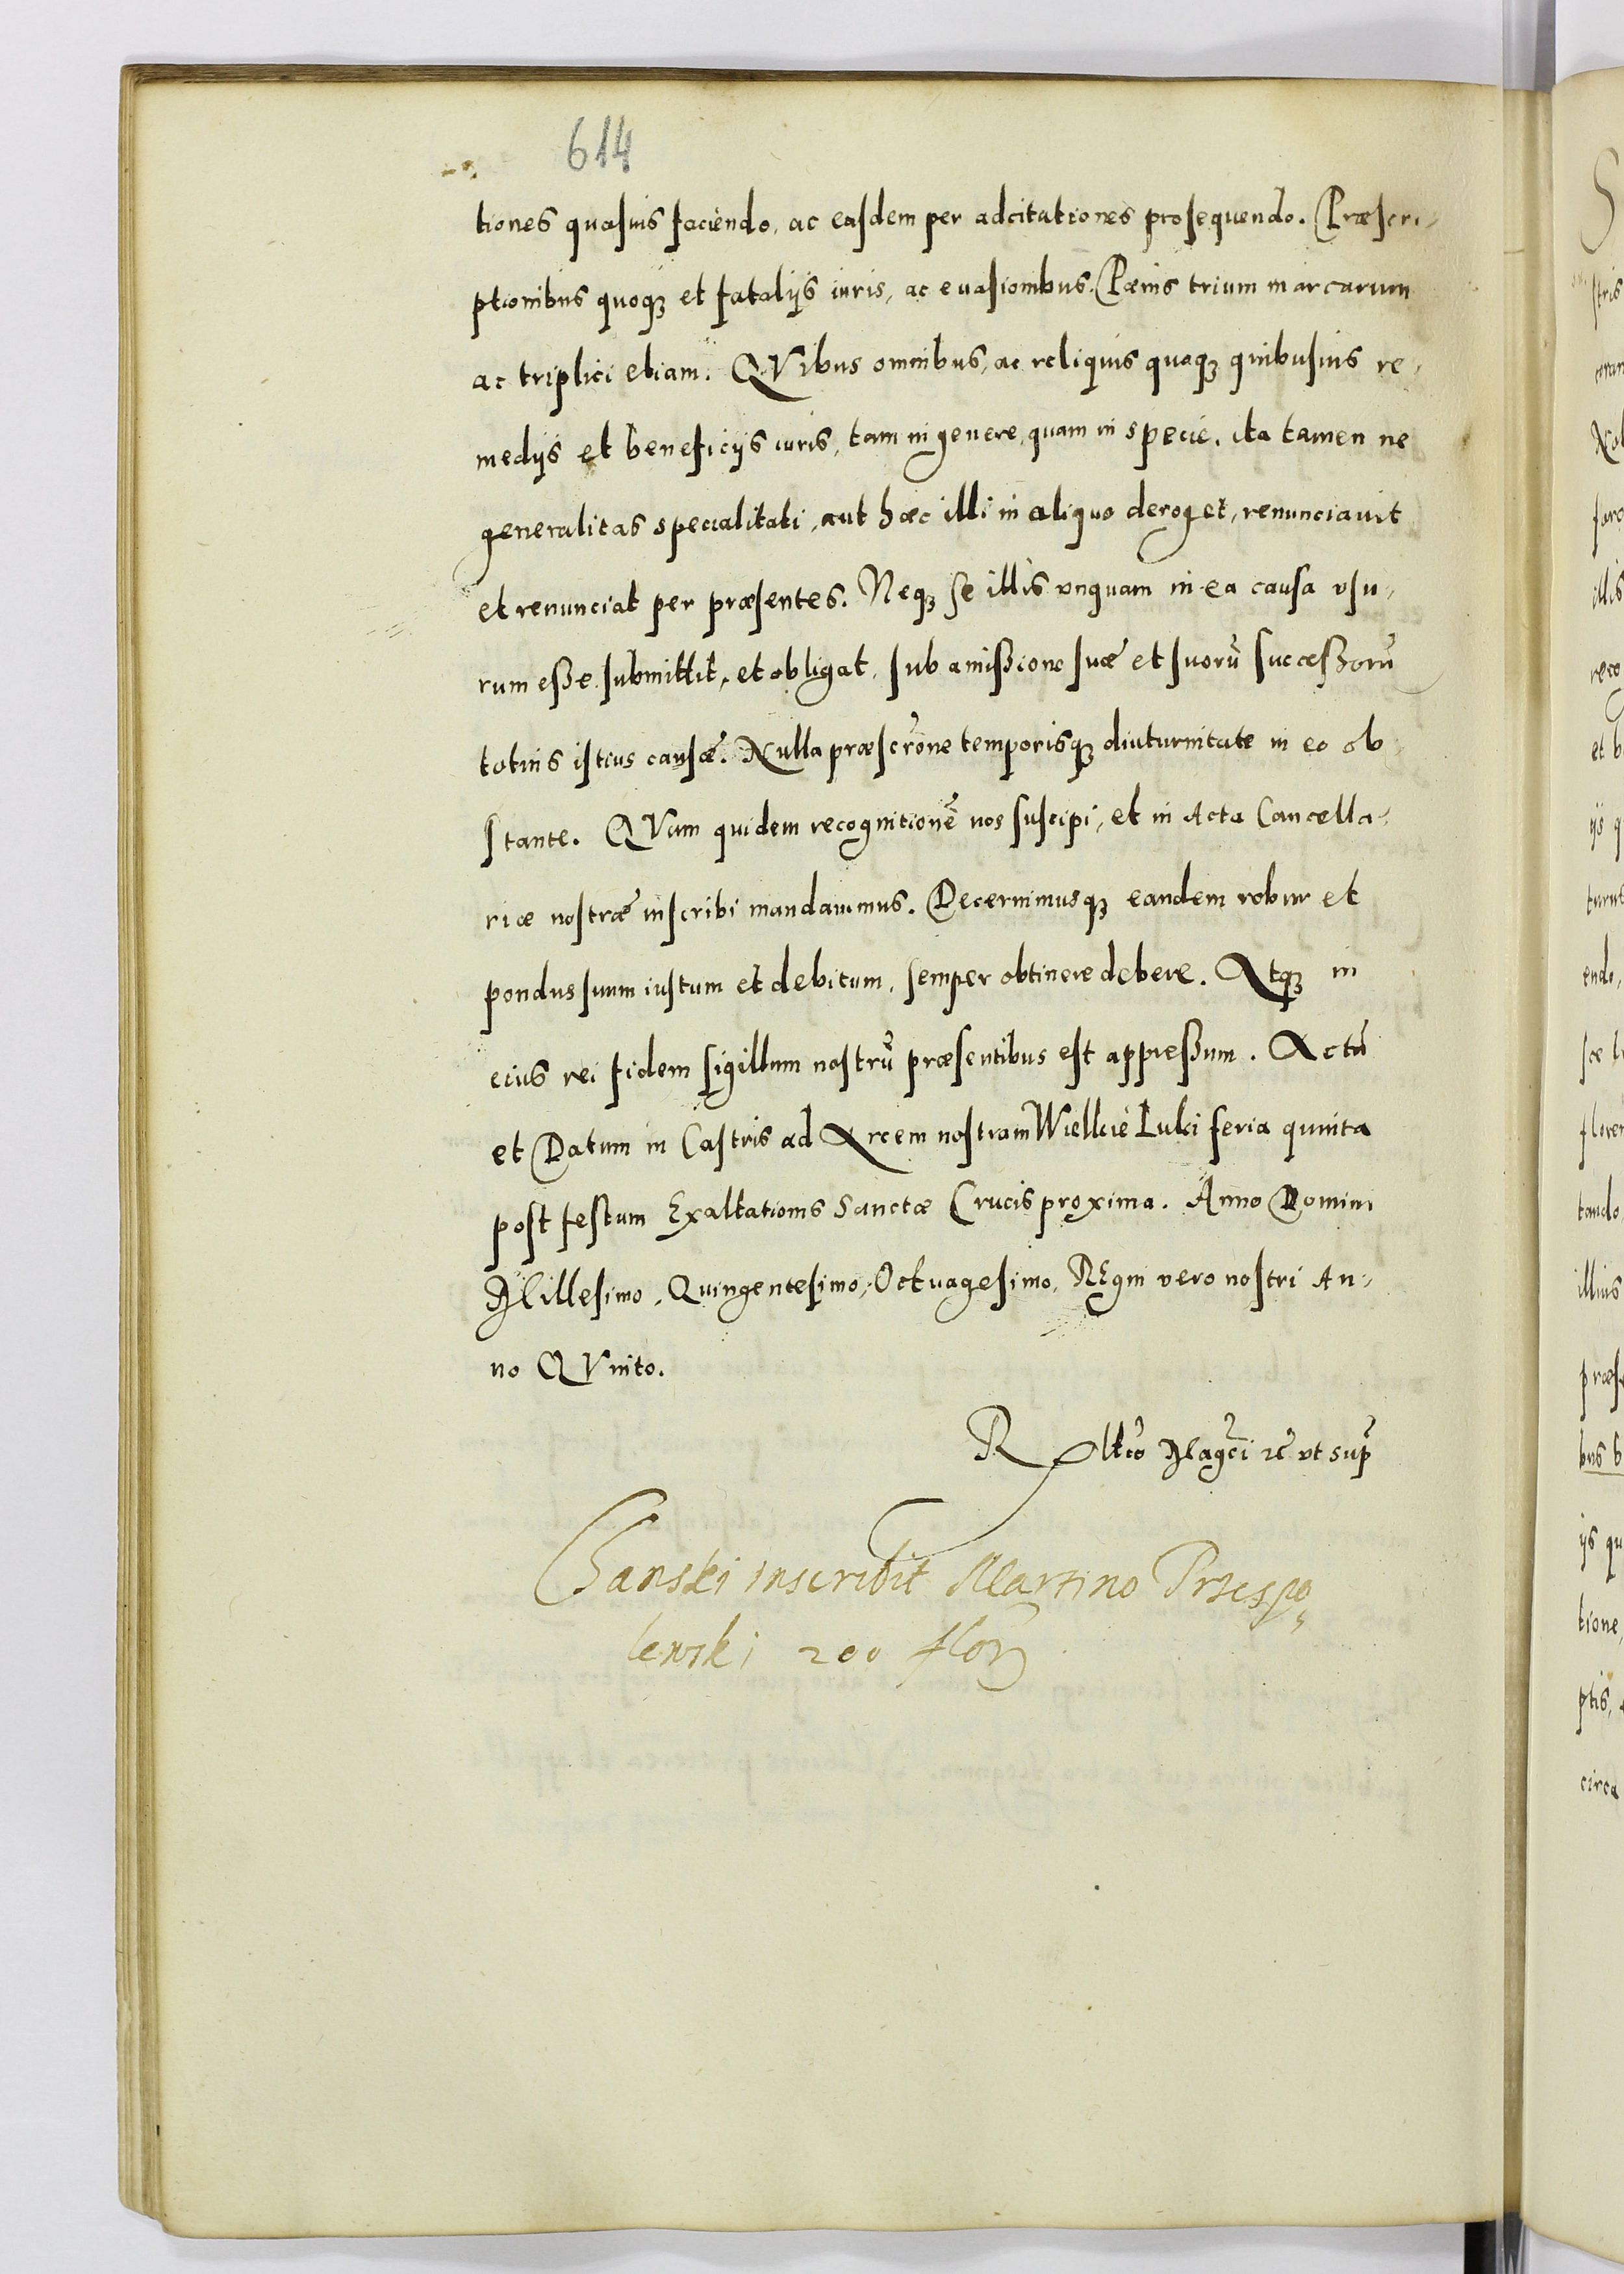 614
tiones quasuis faciendo, ac easdem per adcitationes prosequendo. Præscri-
ptionibus quoqꝫ et fatalijs iuris, ac euasionibus. Pænis trium marcarum
ac triplici etiam. QVibus omnibus, ac reliquis quoqꝫ quibusuis re-
medijs et beneficijs iuris, tam in genere, quam in specie, ita tamen ne
generalitas specialitati, aut hæc illi in aliquo deroget, renunciauit
et renunciat per præsentes. Neqꝫ se illis vnquam in ea causa vsu-
rum eße submittit, et obligat, sub amißione suæ et suorū succeßorū
totius istius causæ. Nulla præscrōne temporisqꝫ diuturnitate in eo ob-
stante. QVam quidem recognitionē nos suscipi, et in Acta Cancella-
riæ nostræ inscribi mandauimus. Decernimusqꝫ eandem robur et
pondus suum iustum et debitum, semper obtinere debere. Atqꝫ in
eius rei fidem sigillum nostrū præsentibus est appreßum. Actū
et Datum in Castris ad Arcem nostram Wielkie Luki feria quinta
post festum Exaltationis Sanctæ Crucis proxima. Anno Domini
Millesimo, Quingentesimo, Octuagesimo, REgni vero nostri An-
no QVinto.
R Magci ut sup
Chanski inscribit Martino Przespo
lenski 200 flor